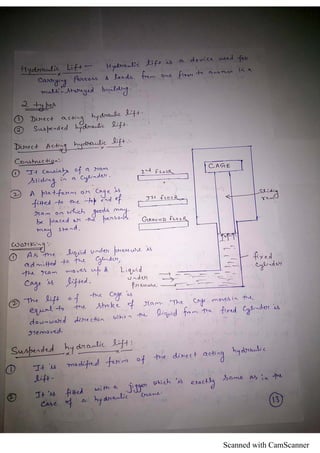 Hydraulic Lift:- Hydraulic lift is a device used for
carrying persons & loads from one floor to another in a
multi-storeyed building.
2 types
① Direct acting hydraulic lift.
② Suspended hydraulic lift.
Direct Acting hydraulic lift:-
Construction:-
① It consists of a ram
sliding in a cylinder.
② A platform or cage is
fitted to the top end of
ram on which goods may
be placed or the persons
may stand.
CAGE
2nd floor
1st floor
Ground floor
Sliding
ram
Liquid
under
Pressure
fixed
cylinder
Working:-
① As the liquid under pressure is
admitted to the cylinder,
the ram moves up &
cage is lifted.
② The lift of the cage is
equal to the stroke of ram. The cage moves in the
downward direction when the liquid from the fixed cylinder is
removed.
Suspended hydraulic lift:
① It is modified form of the direct acting hydraulic
lift.
② It is fitted with a jigger which is exactly same as in the
case of a hydraulic crane.
13
Scanned with CamScanner